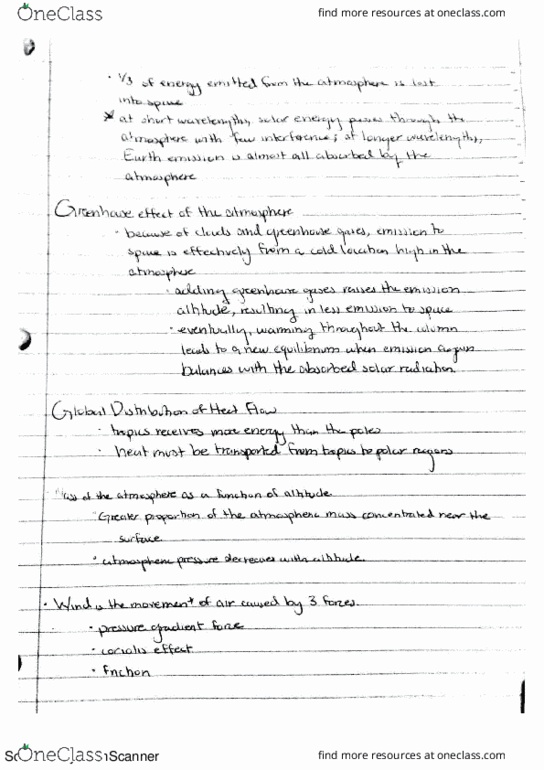 OneClass
find more resources at oneclass.com
• 1/3 of energy emitted from the atmosphere is lost
into space
* at short wavelengths, solar energy passes through the
atmosphere with few interference; at longer wavelengths,
Earth emission is almost all absorbed by the
atmosphere
Greenhouse effect of the atmosphere
• because of clouds and greenhouse gases, emission to
space is effectively from a cold location high in the
atmosphere
• adding greenhouse gases raises the emission
altitude, resulting in less emission to space
• eventually, warming throughout the column
leads to a new equilibrium when emission again
balances with the absorbed solar radiation.
Global Distribution of Heat Flow
• tropics receives more energy than the poles
• heat must be transported from tropics to polar regions
of the atmosphere as a function of altitude
• Greater proportion of the atmospheric mass concentrated near the
surface
• atmospheric pressure decreases with altitude.
• Wind is the movement of air caused by 3 forces.
• pressure gradient force
• coriolis effect
• friction
OneClass
Scanner
find more resources at oneclass.com